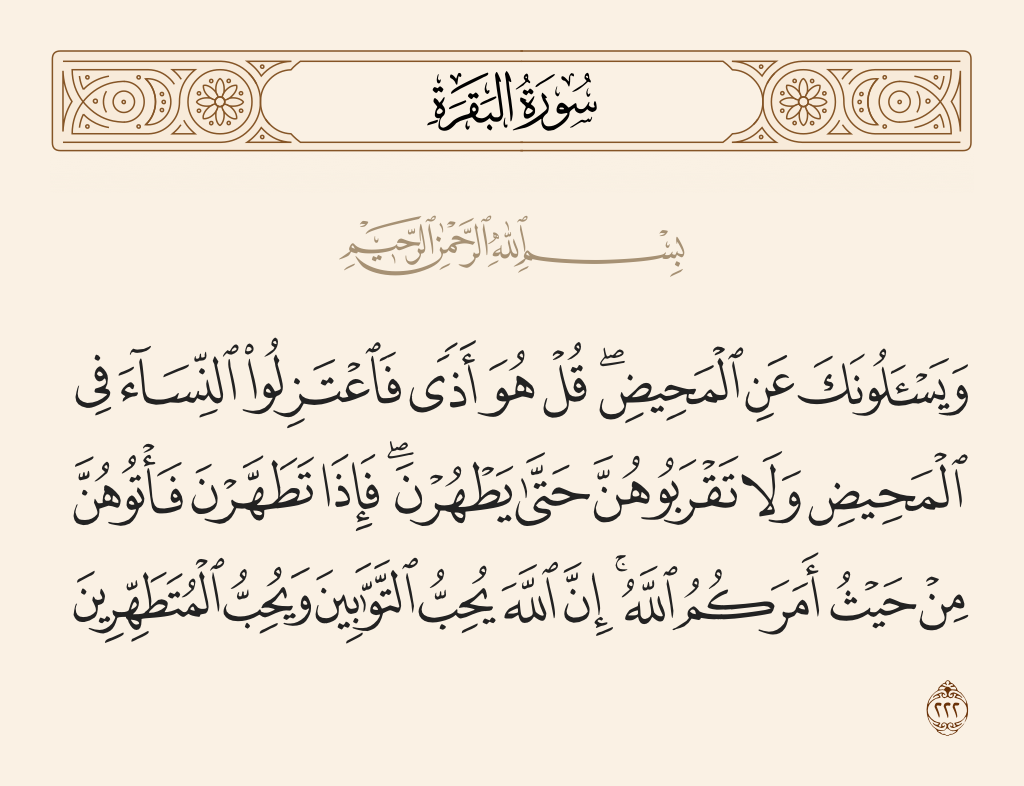 سُورَةُ البَقَرَةِ
بِسْمِ ٱللَّهِ ٱلرَّحْمَٰنِ ٱلرَّحِيمِ
وَيَسْـَٔلُونَكَ عَنِ ٱلْمَحِيضِ ۖ قُلْ هُوَ أَذًى فَٱعْتَزِلُوا۟ ٱلنِّسَآءَ فِى
ٱلْمَحِيضِ وَلَا تَقْرَبُوهُنَّ حَتَّىٰ يَطْهُرْنَ ۖ فَإِذَا تَطَهَّرْنَ فَأْتُوهُنَّ
مِنْ حَيْثُ أَمَرَكُمُ ٱللَّهُ ۚ إِنَّ ٱللَّهَ يُحِبُّ ٱلتَّوَّٰبِينَ وَيُحِبُّ ٱلْمُتَطَهِّرِينَ
٢٢٢